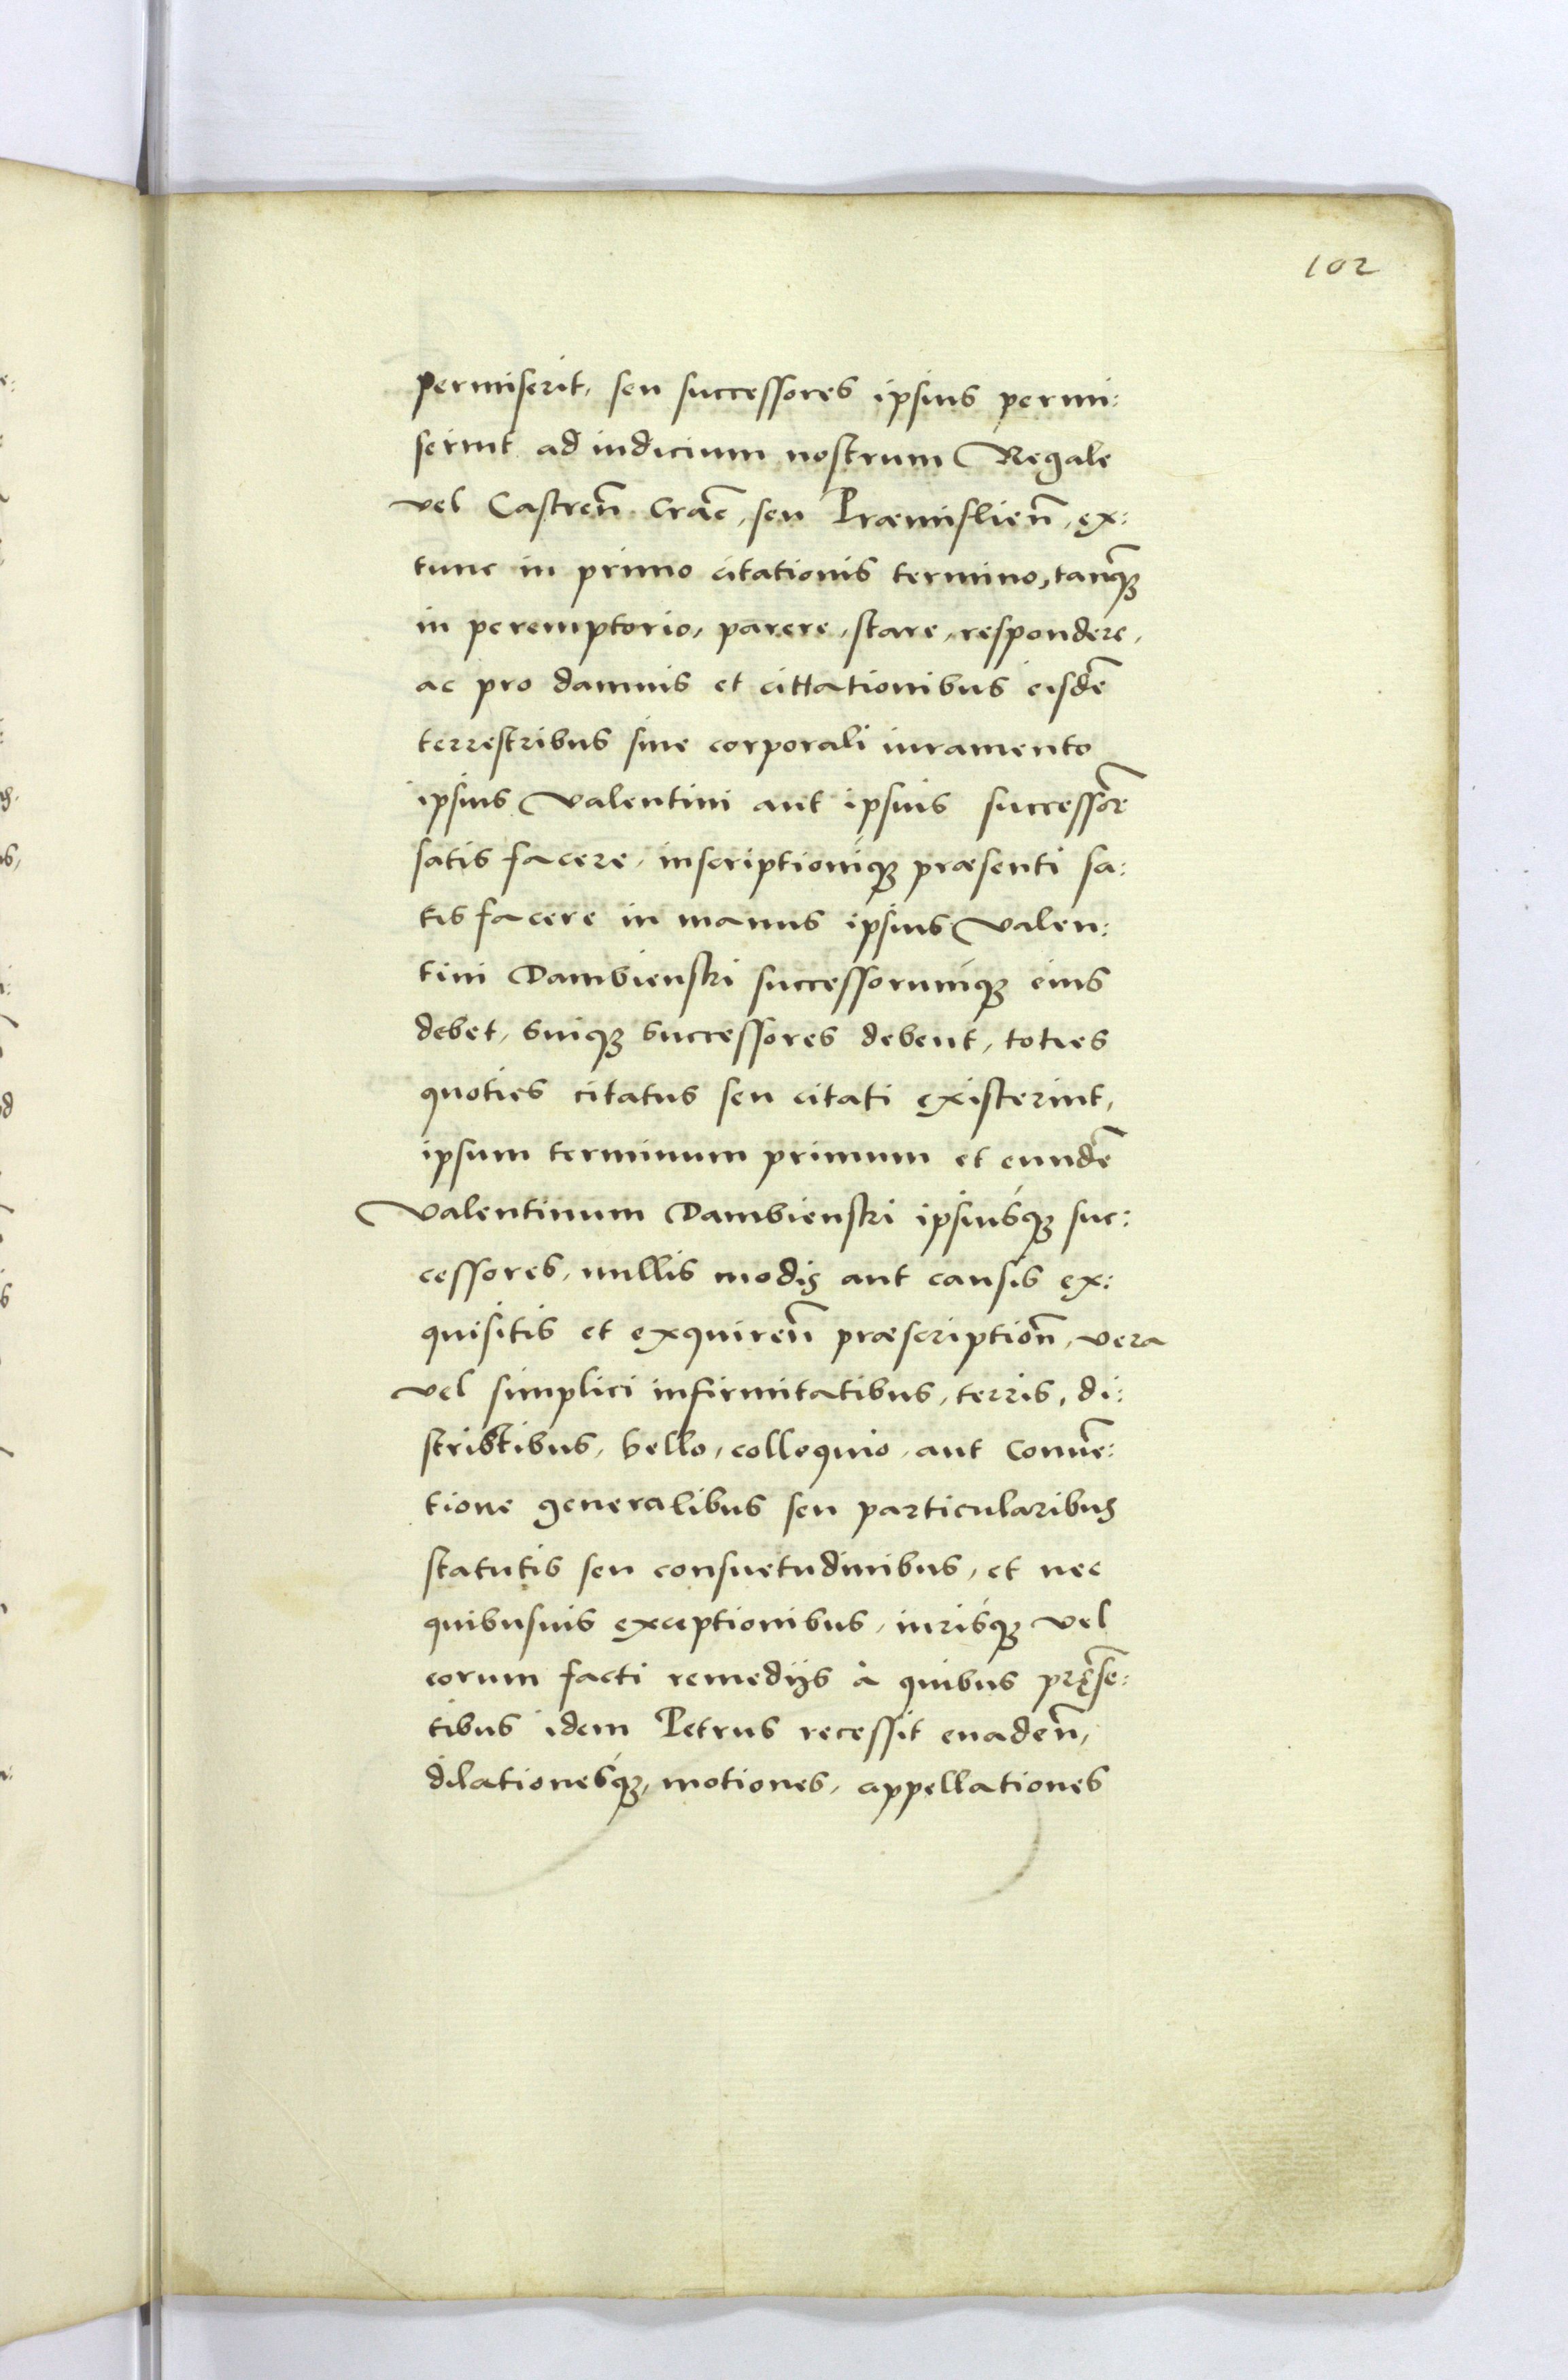 102
permiserit, seu successores ipsius permi:
serint ad iudicium nostrum Regale
vel Castren̄ Crac̄, seu Præmislien̄, ex:
tunc in primo citationis termino, tanq̄ꝫ
in peremptorio, parere, stare, respondere,
ac pro damnis et cittationibus eisdē
terrestribus sine corporali iuramento
ipsius Valentini aut ipsius successor̄
satis facere, inscriptioniqꝫ præsenti sa:
tis facere in manus ipsius Valen:
tini Dambienski successorumqꝫ eius
debet, suiqꝫ successores debent, toties
quoties citatus seu citati existerint,
ipsum terminum primum et eundē
Valentinum Dambienski ipsiusqꝫ suc:
cessores, nullis modis aut causis ex:
quisitis et exquiren̄ præscription̄, vera
vel simplici infirmitatibus, terris, di:
strictibus, bello, colloquio, aut Conuē:
tione generalibus seu particularibus
statutis seu consuetudinibus, et nec
quibusuis exceptionibus, iurisqꝫ vel
eorum facti remedijs à quibus pręsē:
tibus idem Petrus recessit euaden̄,
dilationesqꝫ, motiones, appellationes